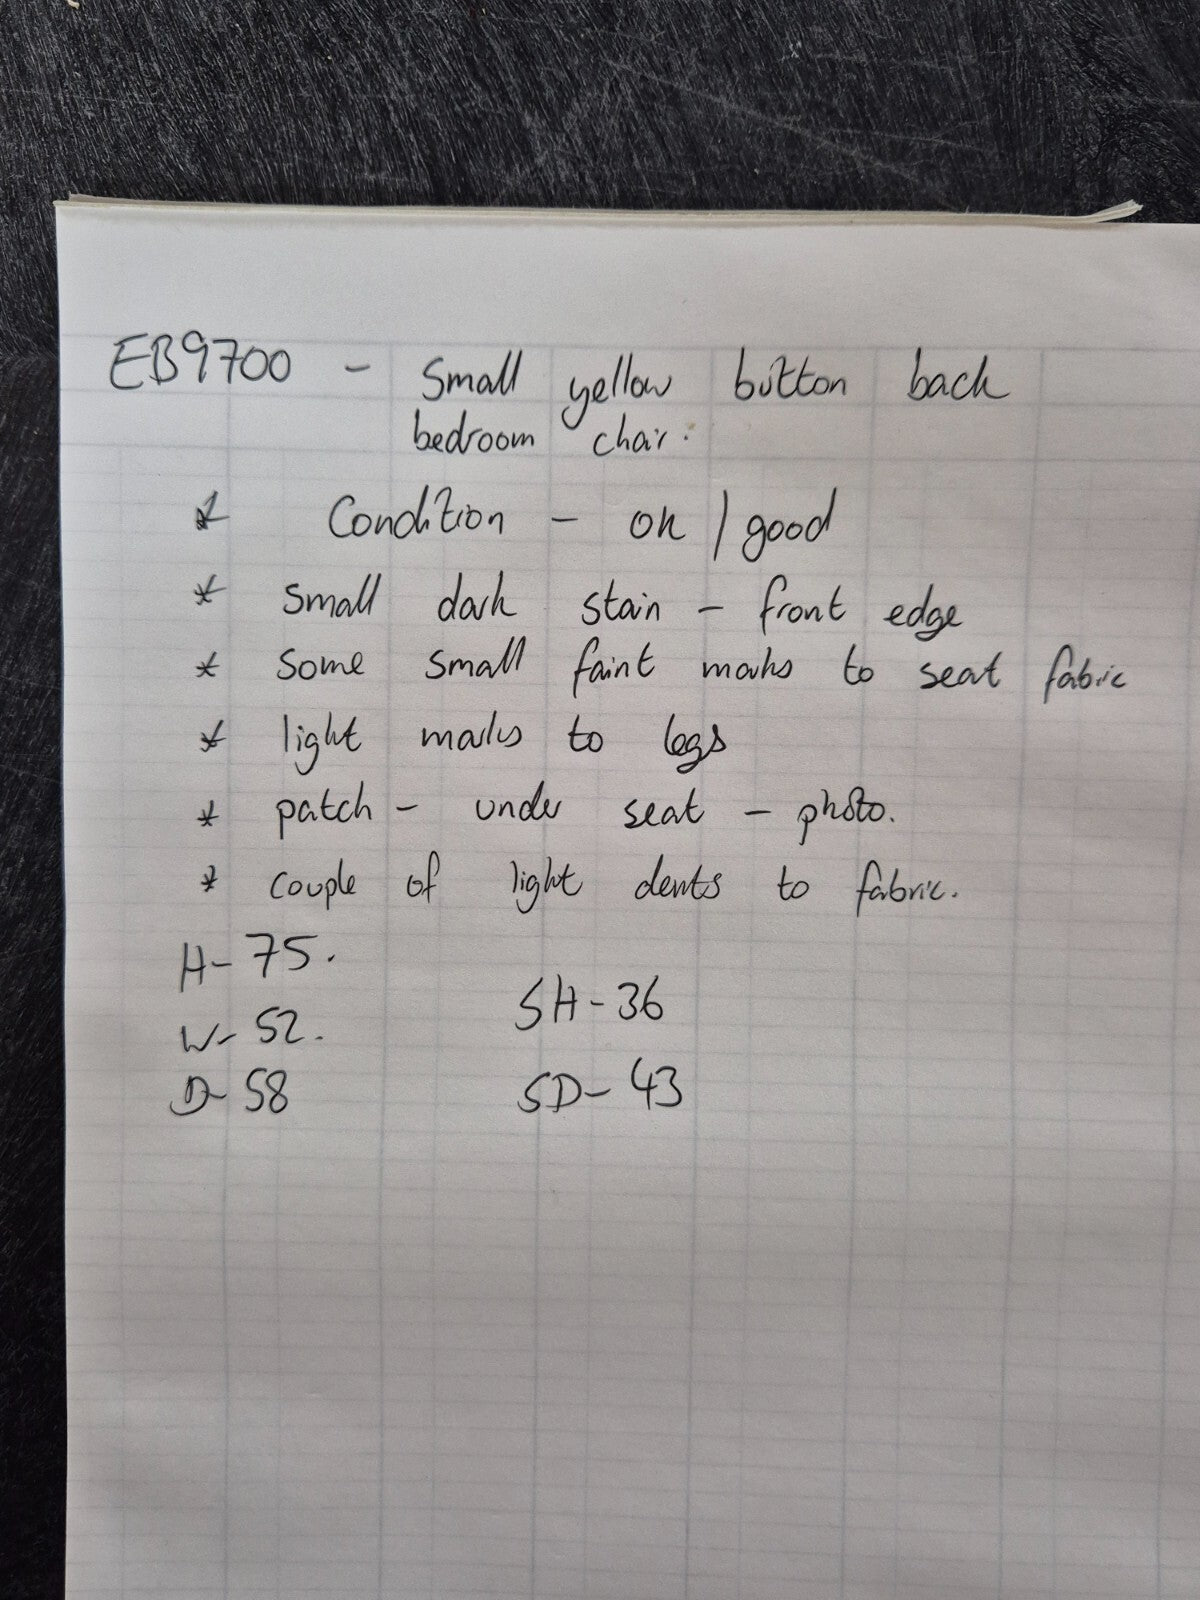 EB9700 - Small yellow button back
bedroom chair.
* Condition - ok / good
* small dark stain - front edge
* some small faint marks to seat fabric
* light marks to legs
* patch - under seat - photo.
* couple of light dents to fabric.
H- 75.
W- 52.
D- 58
SH - 36
SD - 43